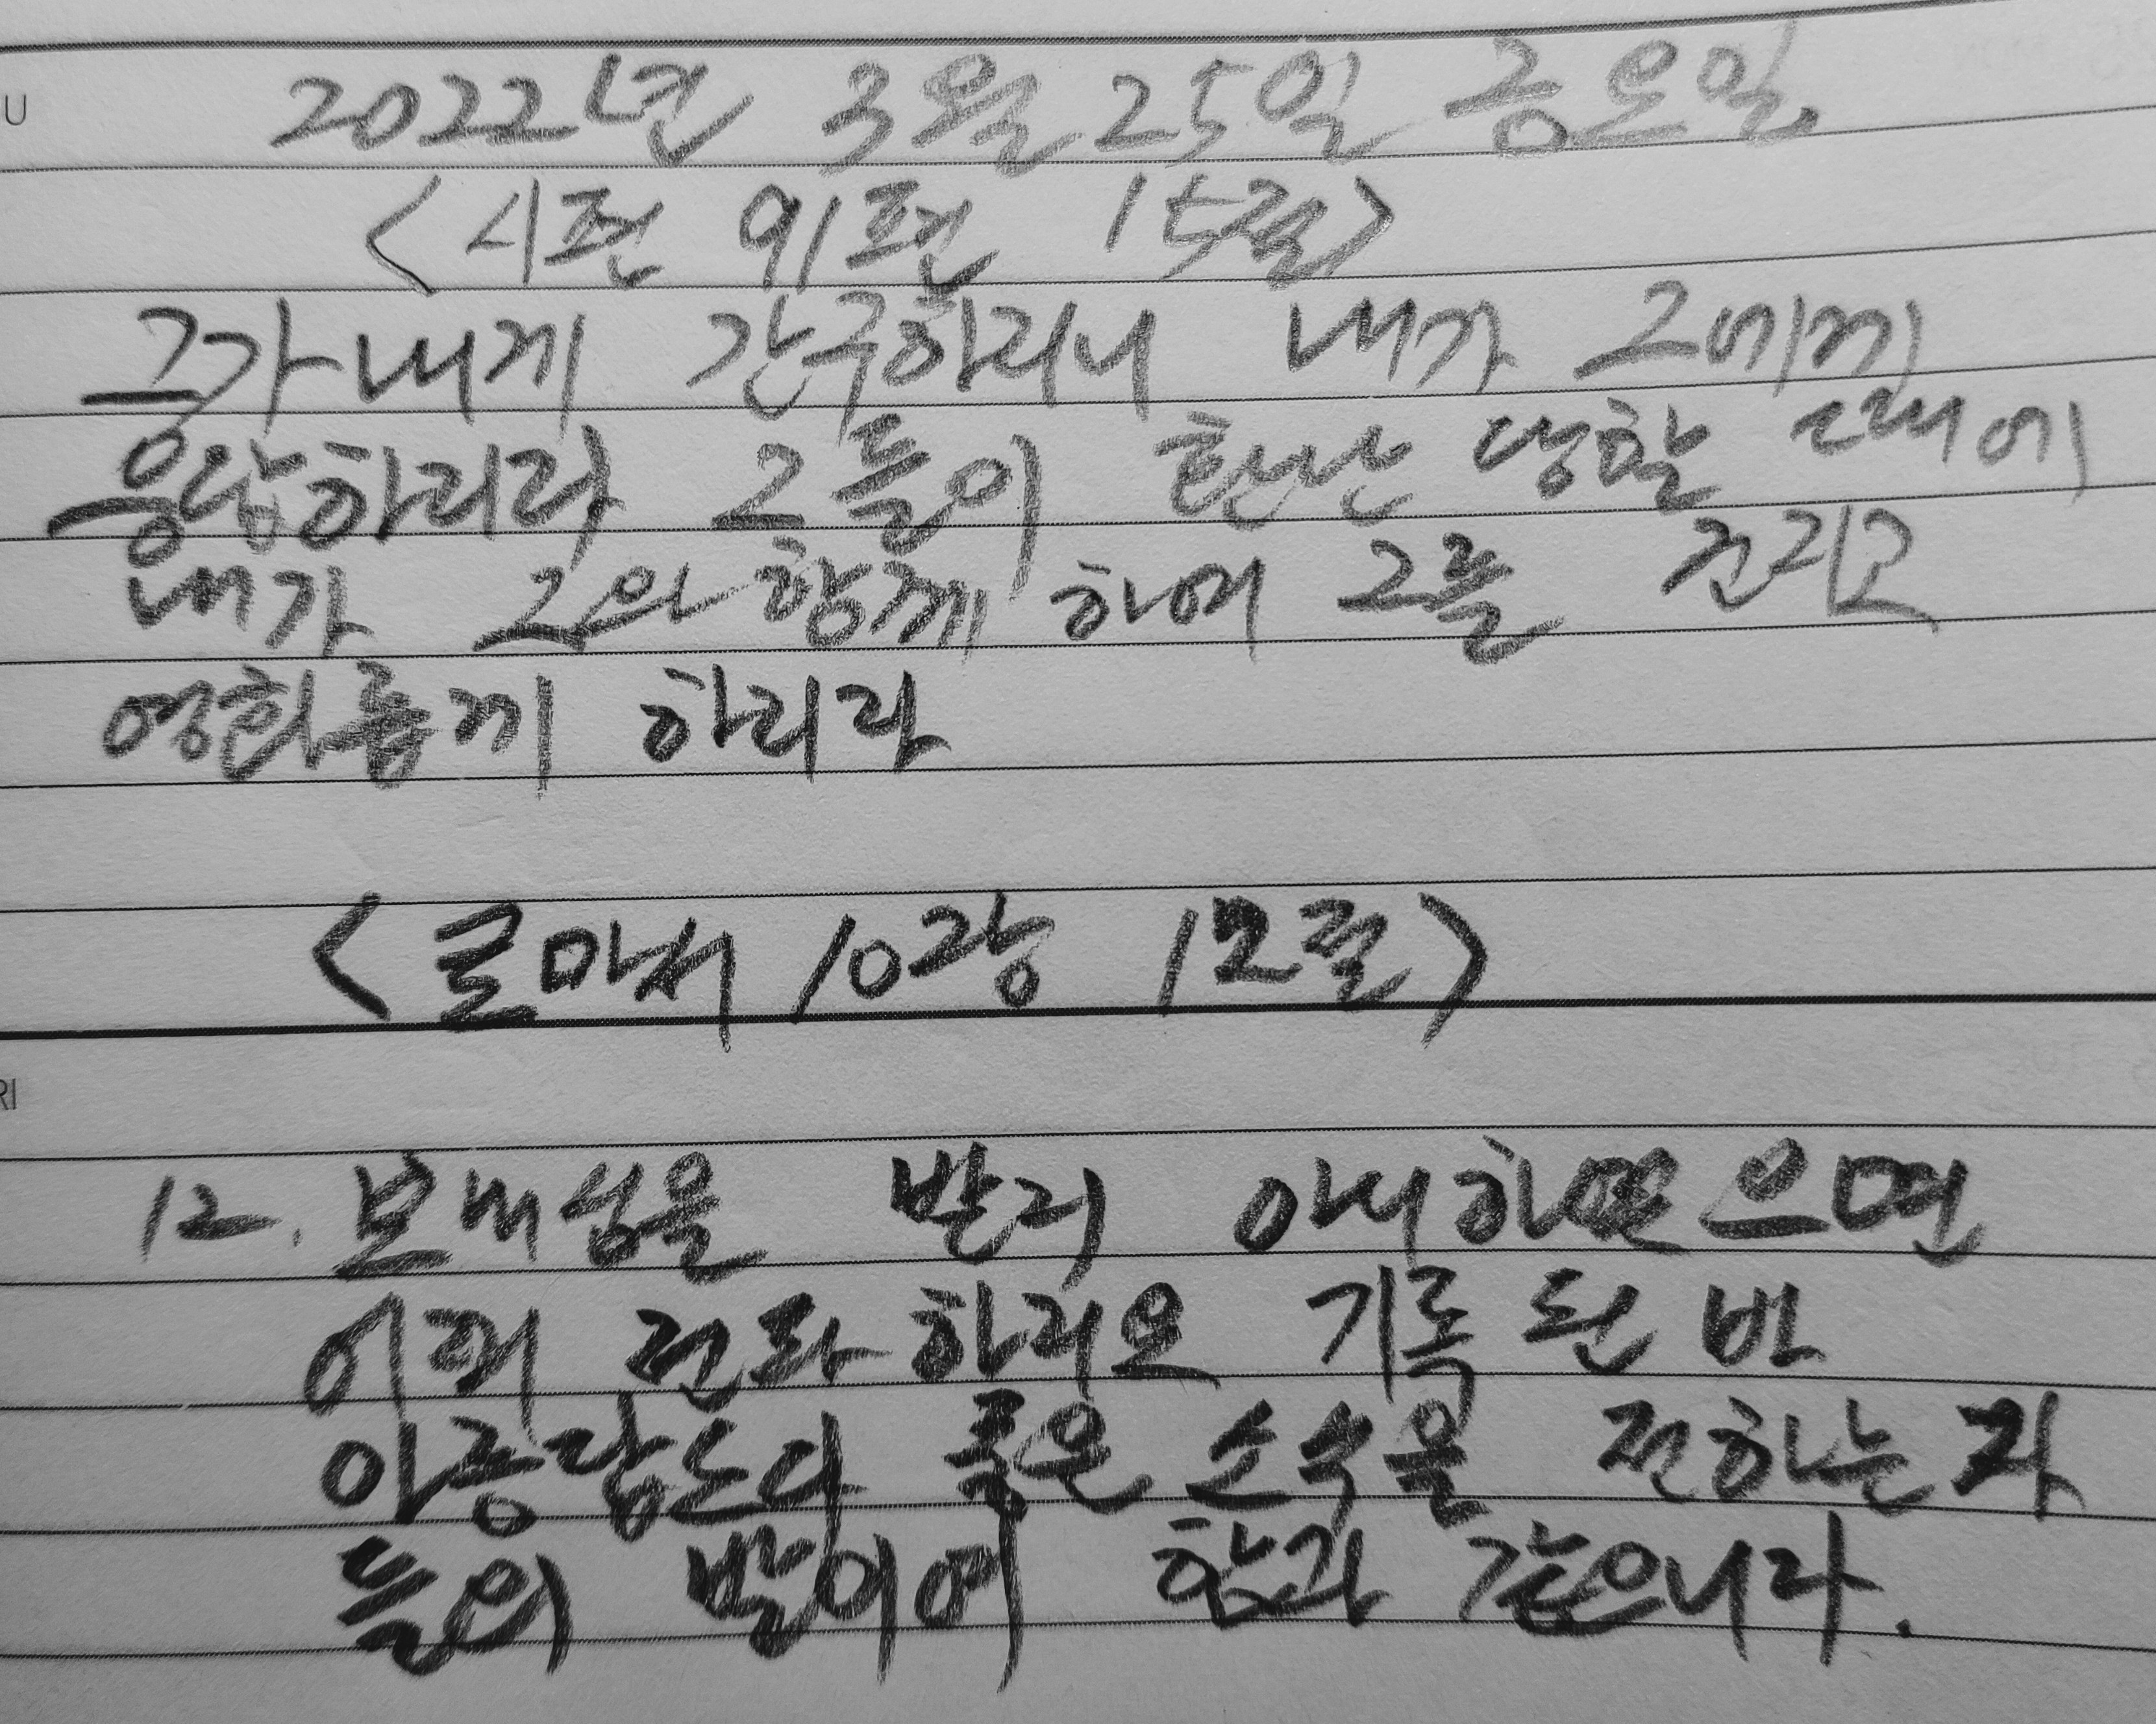 U
2022년 3월 25일 금요일
<시편 91편 15절>
그가 내게 간구하리니 내가 그에게
응답하리라 그들이 환난 당할 때에
내가 그와 함께 하여 그를 건지고
영화롭게 하리라
<로마서 10장 12절>
RI
12. 보내심을 받지 아니하였으면
어찌 전파 하리요 기록 된 바
아름답도다 좋은 소식을 전하는 자
들의 발이여 함과 같으니라.